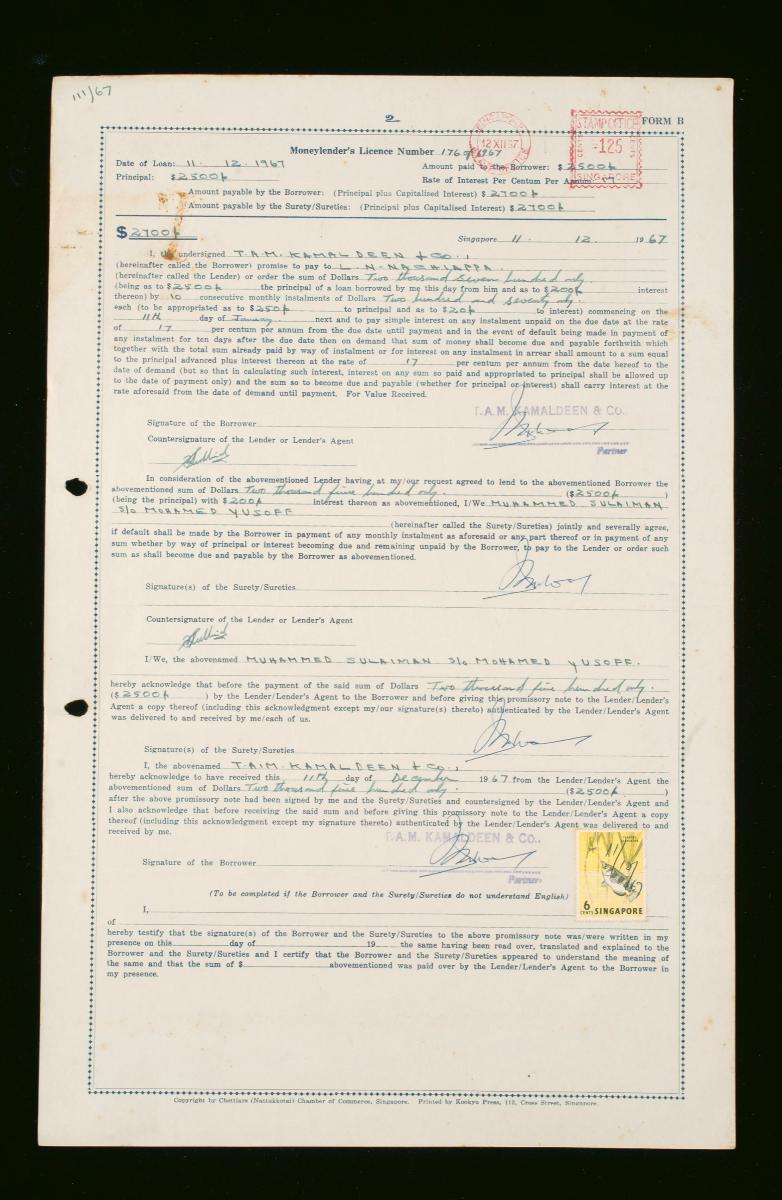 111/67
2
FORM B
12 XII 67
STAMP OFFICE
-125
CENTS
SINGAPORE
Moneylender's Licence Number 176 of 1967
Date of Loan: 11 . 12 . 1967
Amount paid to the Borrower: $ 2500/-
Principal: $2500/-
Rate of Interest Per Centum Per Annum: 17
Amount payable by the Borrower: (Principal plus Capitalised Interest) $ 2700/-
Amount payable by the Surety/Sureties: (Principal plus Capitalised Interest) $ 2700/-
$ 2700/-
Singapore 11 . 12 . 1967
I, the undersigned T.A.M. KAMALDEEN & Co.,
(hereinafter called the Borrower) promise to pay to L. N. NACHIAPPA.
(hereinafter called the Lender) or order the sum of Dollars Two thousand seven hundred only
(being as to $2500/- the principal of a loan borrowed by me this day from him and as to $200/- interest
thereon) by 10 consecutive monthly instalments of Dollars Two hundred and seventy only.
each (to be appropriated as to $250/- to principal and as to $20/- to interest) commencing on the
11th day of January next and to pay simple interest on any instalment unpaid on the due date at the rate
of 17 per centum per annum from the due date until payment and in the event of default being made in payment of
any instalment for ten days after the due date then on demand that sum of money shall become due and payable forthwith which
together with the total sum already paid by way of instalment or for interest on any instalment in arrear shall amount to a sum equal
to the principal advanced plus interest thereon at the rate of 17 per centum per annum from the date hereof to the
date of demand (but so that in calculating such interest, interest on any sum so paid and appropriated to principal shall be allowed up
to the date of payment only) and the sum so to become due and payable (whether for principal or interest) shall carry interest at the
rate aforesaid from the date of demand until payment. For Value Received.
T.A.M. KAMALDEEN & Co.
Signature of the Borrower
Partner
Countersignature of the Lender or Lender's Agent
In consideration of the abovementioned Lender having at my/our request agreed to lend to the abovementioned Borrower the
abovementioned sum of Dollars Two thousand five hundred only. ($2500/- )
(being the principal) with $ 200/- interest thereon as abovementioned, I/We MUHAMMED SULAIMAN
S/o MOHAMED YUSOFF
(hereinafter called the Surety/Sureties) jointly and severally agree,
if default shall be made by the Borrower in payment of any monthly instalment as aforesaid or any part thereof or in payment of any
sum whether by way of principal or interest becoming due and remaining unpaid by the Borrower, to pay to the Lender or order such
sum as shall become due and payable by the Borrower as abovementioned.
Signature(s) of the Surety/Sureties
Countersignature of the Lender or Lender's Agent
I/We, the abovenamed MUHAMMED SULAIMAN S/o MOHAMED YUSOFF.
hereby acknowledge that before the payment of the said sum of Dollars Two thousand five hundred only.
($2500/- ) by the Lender/Lender's Agent to the Borrower and before giving this promissory note to the Lender/Lender's
Agent a copy thereof (including this acknowledgment except my/our signature(s) thereto) authenticated by the Lender/Lender's Agent
was delivered to and received by me/each of us.
Signature(s) of the Surety/Sureties
I, the abovenamed T.A.M. KAMALDEEN & Co.,
hereby acknowledge to have received this 11th day of December 1967 from the Lender/Lender's Agent the
abovementioned sum of Dollars Two thousand five hundred only. ($2500/- )
after the above promissory note had been signed by me and the Surety/Sureties and countersigned by the Lender/Lender's Agent and
I also acknowledge that before receiving the said sum and before giving this promissory note to the Lender/Lender's Agent a copy
thereof (including this acknowledgment except my signature thereto) authenticated by the Lender/Lender's Agent was delivered to and
received by me.
T.A.M. KAMALDEEN & Co.
Signature of the Borrower
Partner
6 CENTS SINGAPORE
(To be completed if the Borrower and the Surety/Sureties do not understand English)
I,
of
hereby testify that the signature(s) of the Borrower and the Surety/Sureties to the above promissory note was/were written in my
presence on this day of 19 the same having been read over, translated and explained to the
Borrower and the Surety/Sureties and I certify that the Borrower and the Surety/Sureties appeared to understand the meaning of
the same and that the sum of $ abovementioned was paid over by the Lender/Lender's Agent to the Borrower in
my presence.
Copyright by Chettiars (Nattukkottai) Chamber of Commerce, Singapore. Printed by Kookyu Press, 112, Cross Street, Singapore.